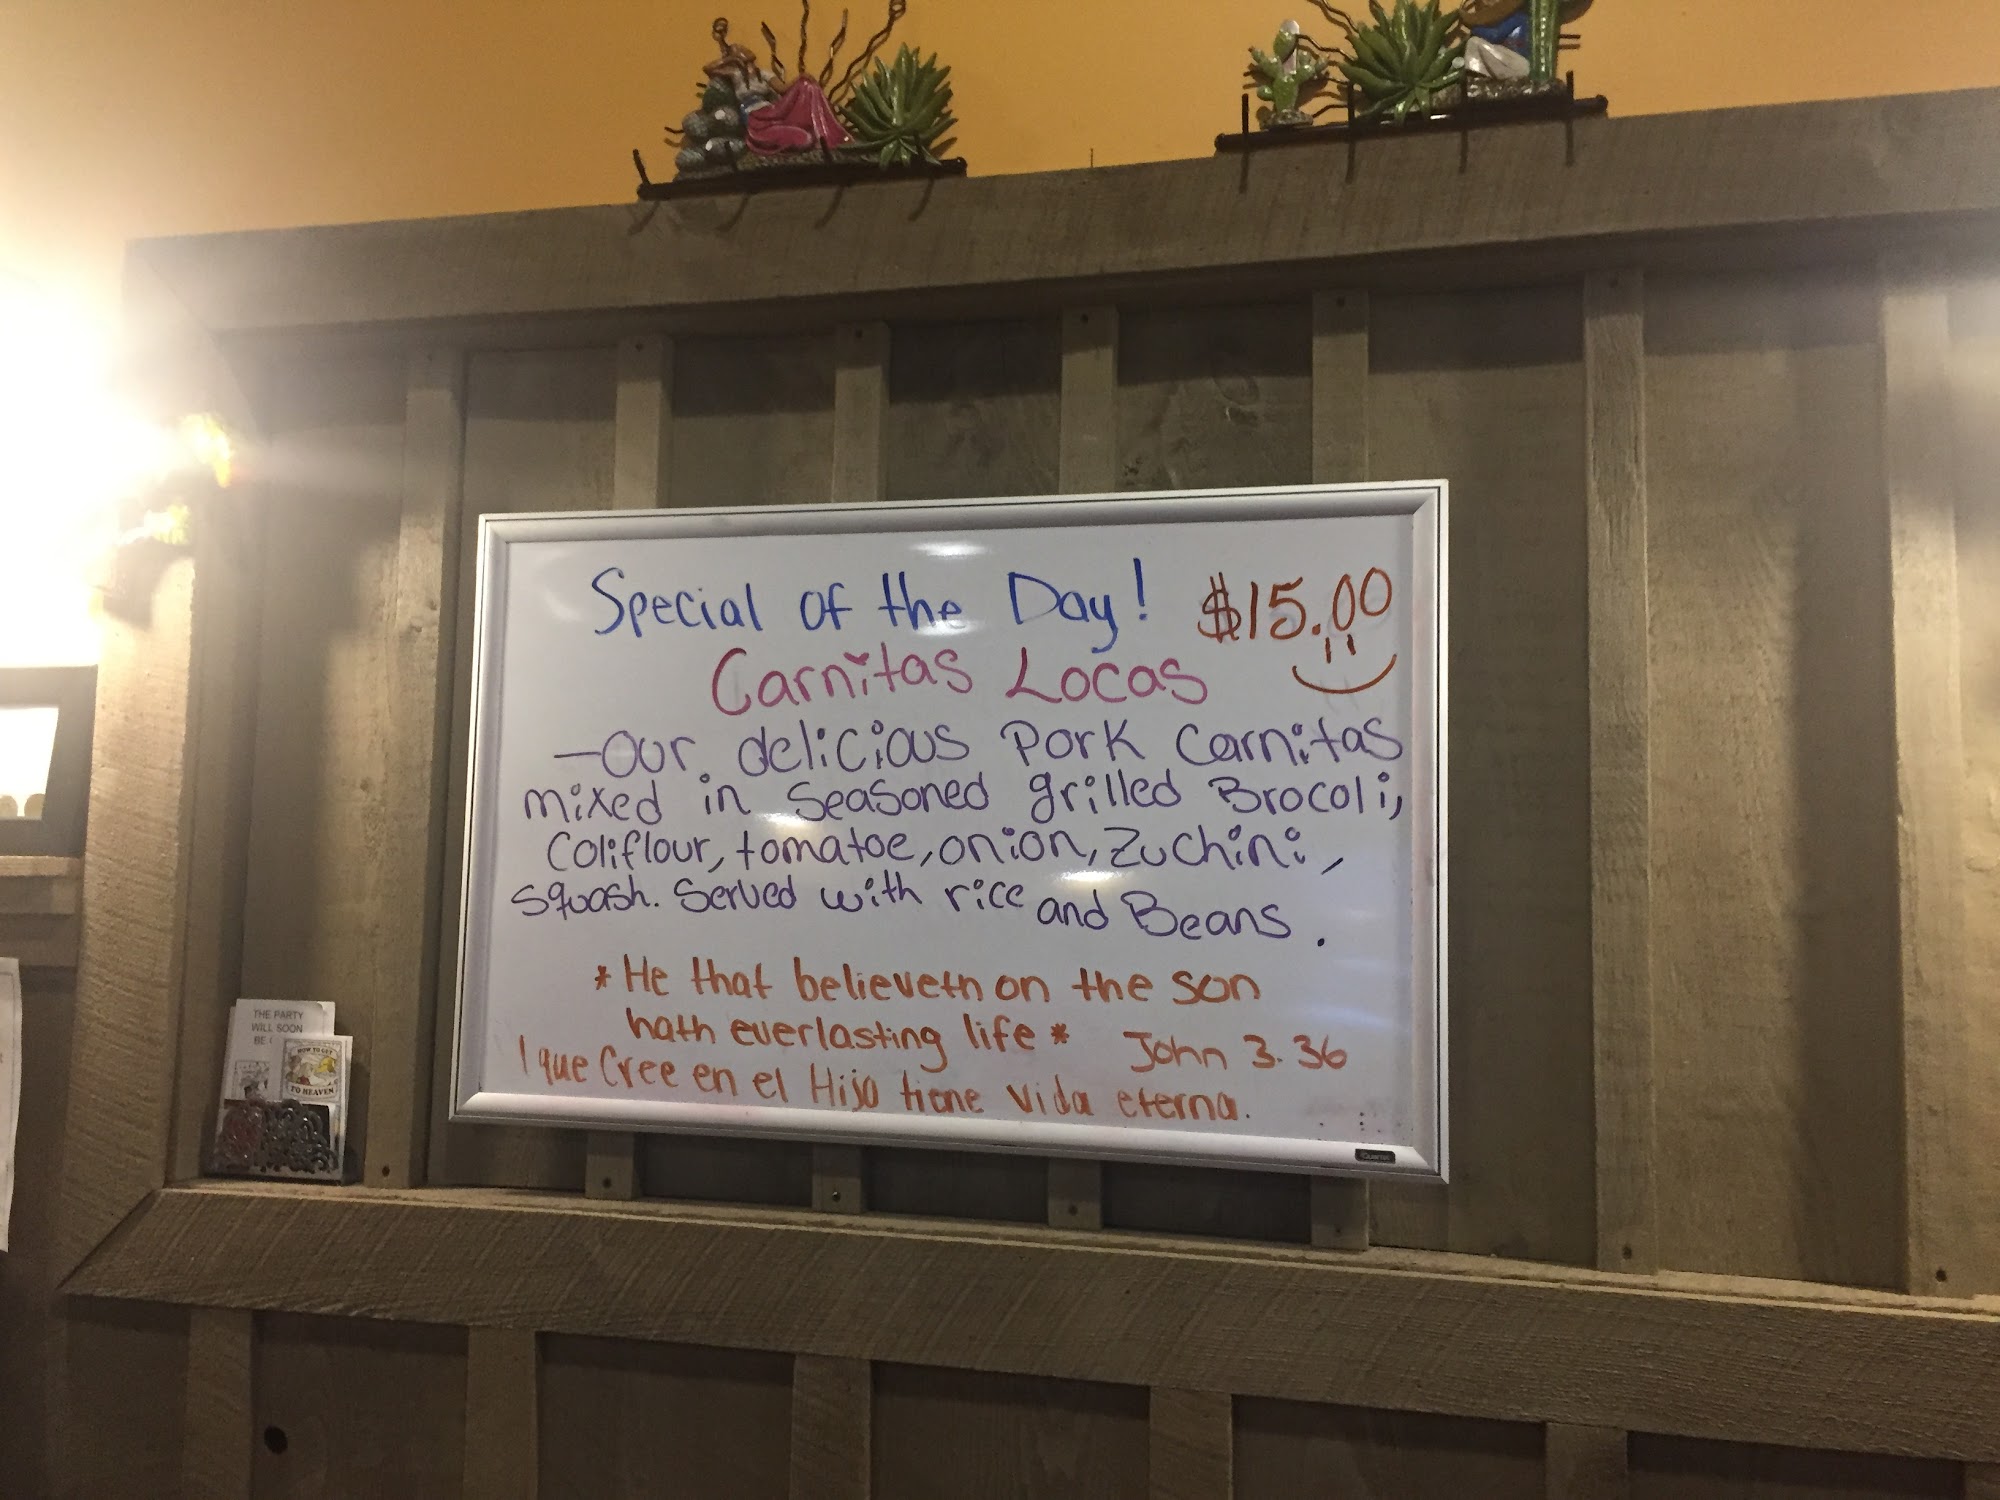 Special of the Day! $15.00
Carnitas Locas
-Our delicious Pork Carnitas
mixed in seasoned grilled Brocoli,
Coliflour, tomatoe, onion, Zuchini,
squash. Served with rice and Beans.
* He that believeth on the son
hath everlasting life * John 3.36
l que Cree en el Hijo tiene vida eterna.
THE PARTY
WILL SOON
BE
HOW TO GET
TO HEAVEN
Quartet